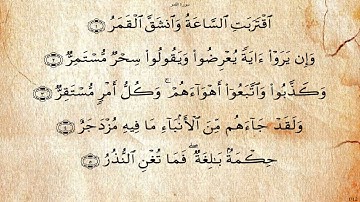 سورة القمر
ٱقْتَرَبَتِ ٱلسَّاعَةُ وَٱنشَقَّ ٱلْقَمَرُ ١
وَإِن يَرَوْا۟ ءَايَةً يُعْرِضُوا۟ وَيَقُولُوا۟ سِحْرٌ مُّسْتَمِرٌّ ٢
وَكَذَّبُوا۟ وَٱتَّبَعُوٓا۟ أَهْوَآءَهُمْ ۚ وَكُلُّ أَمْرٍ مُّسْتَقِرٌّ ٣
وَلَقَدْ جَآءَهُم مِّنَ ٱلْأَنۢبَآءِ مَا فِيهِ مُزْدَجَرٌ ٤
حِكْمَةٌۢ بَـٰلِغَةٌ ۖ فَمَا تُغْنِ ٱلنُّذُرُ ٥